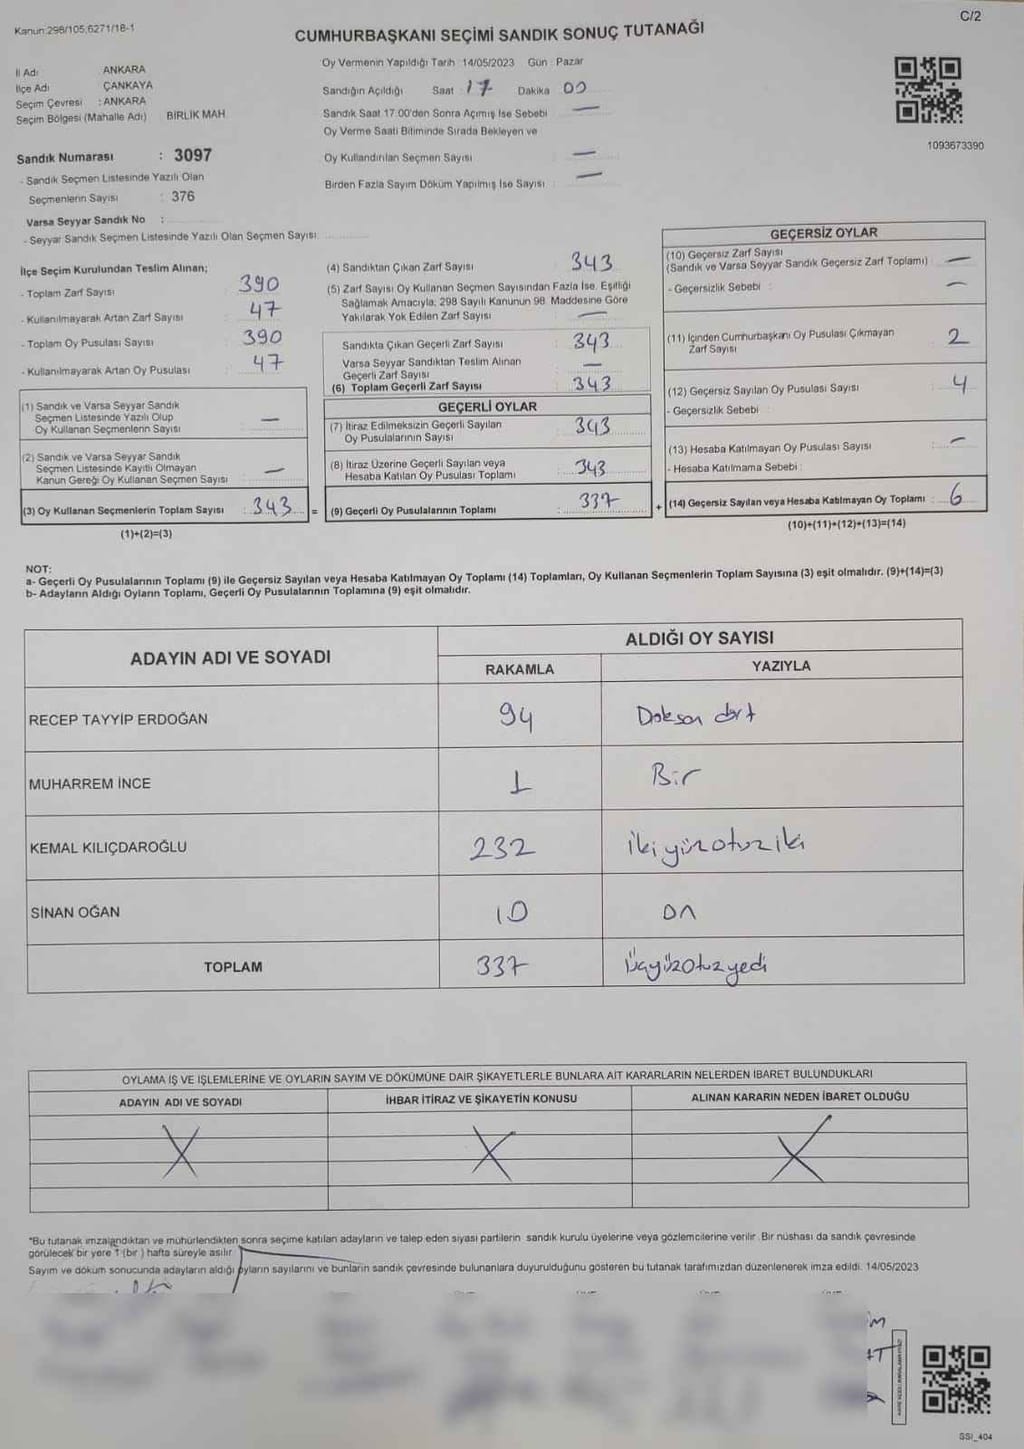 Kanun:298/105,6271/18-1
C/2
CUMHURBAŞKANI SEÇİMİ SANDIK SONUÇ TUTANAĞI
İl Adı ANKARA
İlçe Adı ÇANKAYA
Seçim Çevresi : ANKARA
Seçim Bölgesi (Mahalle Adı) BİRLİK MAH.
Sandık Numarası : 3097
- Sandık Seçmen Listesinde Yazılı Olan
Seçmenlerin Sayısı : 376
Varsa Seyyar Sandık No :
- Seyyar Sandık Seçmen Listesinde Yazılı Olan Seçmen Sayısı:
Oy Vermenin Yapıldığı Tarih : 14/05/2023 Gün : Pazar
Sandığın Açıldığı Saat : 17 Dakika 00
Sandık Saat 17:00'den Sonra Açımış İse Sebebi —
Oy Verme Saati Bitiminde Sırada Bekleyen ve
Oy Kullandırılan Seçmen Sayısı —
Birden Fazla Sayım Döküm Yapılmış İse Sayısı : —
1093673390
İlçe Seçim Kurulundan Teslim Alınan;
- Toplam Zarf Sayısı 390
- Kullanılmayarak Artan Zarf Sayısı 47
- Toplam Oy Pusulası Sayısı 390
- Kullanılmayarak Artan Oy Pusulası 47
(1) Sandık ve Varsa Seyyar Sandık
Seçmen Listesinde Yazılı Olup
Oy Kullanan Seçmenlerin Sayısı —
(2) Sandık ve Varsa Seyyar Sandık
Seçmen Listesinde Kayıtlı Olmayan
Kanun Gereği Oy Kullanan Seçmen Sayısı —
(3) Oy Kullanan Seçmenlerin Toplam Sayısı : 343 =
(1)+(2)=(3)
(4) Sandıktan Çıkan Zarf Sayısı 343
(5) Zarf Sayısı Oy Kullanan Seçmen Sayısından Fazla İse, Eşitliği
Sağlamak Amacıyla; 298 Sayılı Kanunun 98. Maddesine Göre
Yakılarak Yok Edilen Zarf Sayısı —
Sandıkta Çıkan Geçerli Zarf Sayısı 343
Varsa Seyyar Sandıktan Teslim Alınan
Geçerli Zarf Sayısı —
(6) Toplam Geçerli Zarf Sayısı 343
GEÇERLİ OYLAR
(7) İtiraz Edilmeksizin Geçerli Sayılan
Oy Pusulalarının Sayısı 343
(8) İtiraz Üzerine Geçerli Sayılan veya
Hesaba Katılan Oy Pusulası Toplamı 343
(9) Geçerli Oy Pusulalarının Toplamı 337 +
GEÇERSİZ OYLAR
(10) Geçersiz Zarf Sayısı
(Sandık ve Varsa Seyyar Sandık Geçersiz Zarf Toplamı) : —
- Geçersizlik Sebebi : —
(11) İçinden Cumhurbaşkanı Oy Pusulası Çıkmayan
Zarf Sayısı 2
(12) Geçersiz Sayılan Oy Pusulası Sayısı 4
- Geçersizlik Sebebi
(13) Hesaba Katılmayan Oy Pusulası Sayısı : —
- Hesaba Katılmama Sebebi :
(14) Geçersiz Sayılan veya Hesaba Katılmayan Oy Toplamı : 6
(10)+(11)+(12)+(13)=(14)
NOT:
a- Geçerli Oy Pusulalarının Toplamı (9) ile Geçersiz Sayılan veya Hesaba Katılmayan Oy Toplamı (14) Toplamları, Oy Kullanan Seçmenlerin Toplam Sayısına (3) eşit olmalıdır. (9)+(14)=(3)
b- Adayların Aldığı Oyların Toplamı, Geçerli Oy Pusulalarının Toplamına (9) eşit olmalıdır.
ADAYIN ADI VE SOYADI
ALDIĞI OY SAYISI
RAKAMLA YAZIYLA
RECEP TAYYİP ERDOĞAN 94 Doksan dört
MUHARREM İNCE 1 Bir
KEMAL KILIÇDAROĞLU 232 ikiyüzotuziki
SİNAN OĞAN 10 on
TOPLAM 337 üçyüzotuzyedi
OYLAMA İŞ VE İŞLEMLERİNE VE OYLARIN SAYIM VE DÖKÜMÜNE DAİR ŞİKAYETLERLE BUNLARA AİT KARARLARIN NELERDEN İBARET BULUNDUKLARI
ADAYIN ADI VE SOYADI İHBAR İTİRAZ VE ŞİKAYETİN KONUSU ALINAN KARARIN NEDEN İBARET OLDUĞU
X X X
*Bu tutanak imzalandıktan ve mühürlendikten sonra seçime katılan adayların ve talep eden siyasi partilerin sandık kurulu üyelerine veya gözlemcilerine verilir. Bir nüshası da sandık çevresinde
görülecek bir yere 1 (bir ) hafta süreyle asılır.
Sayım ve döküm sonucunda adayların aldığı oyların sayılarını ve bunların sandık çevresinde bulunanlara duyurulduğunu gösteren bu tutanak tarafımızdan düzenlenerek imza edildi. 14/05/2023
SSI_404